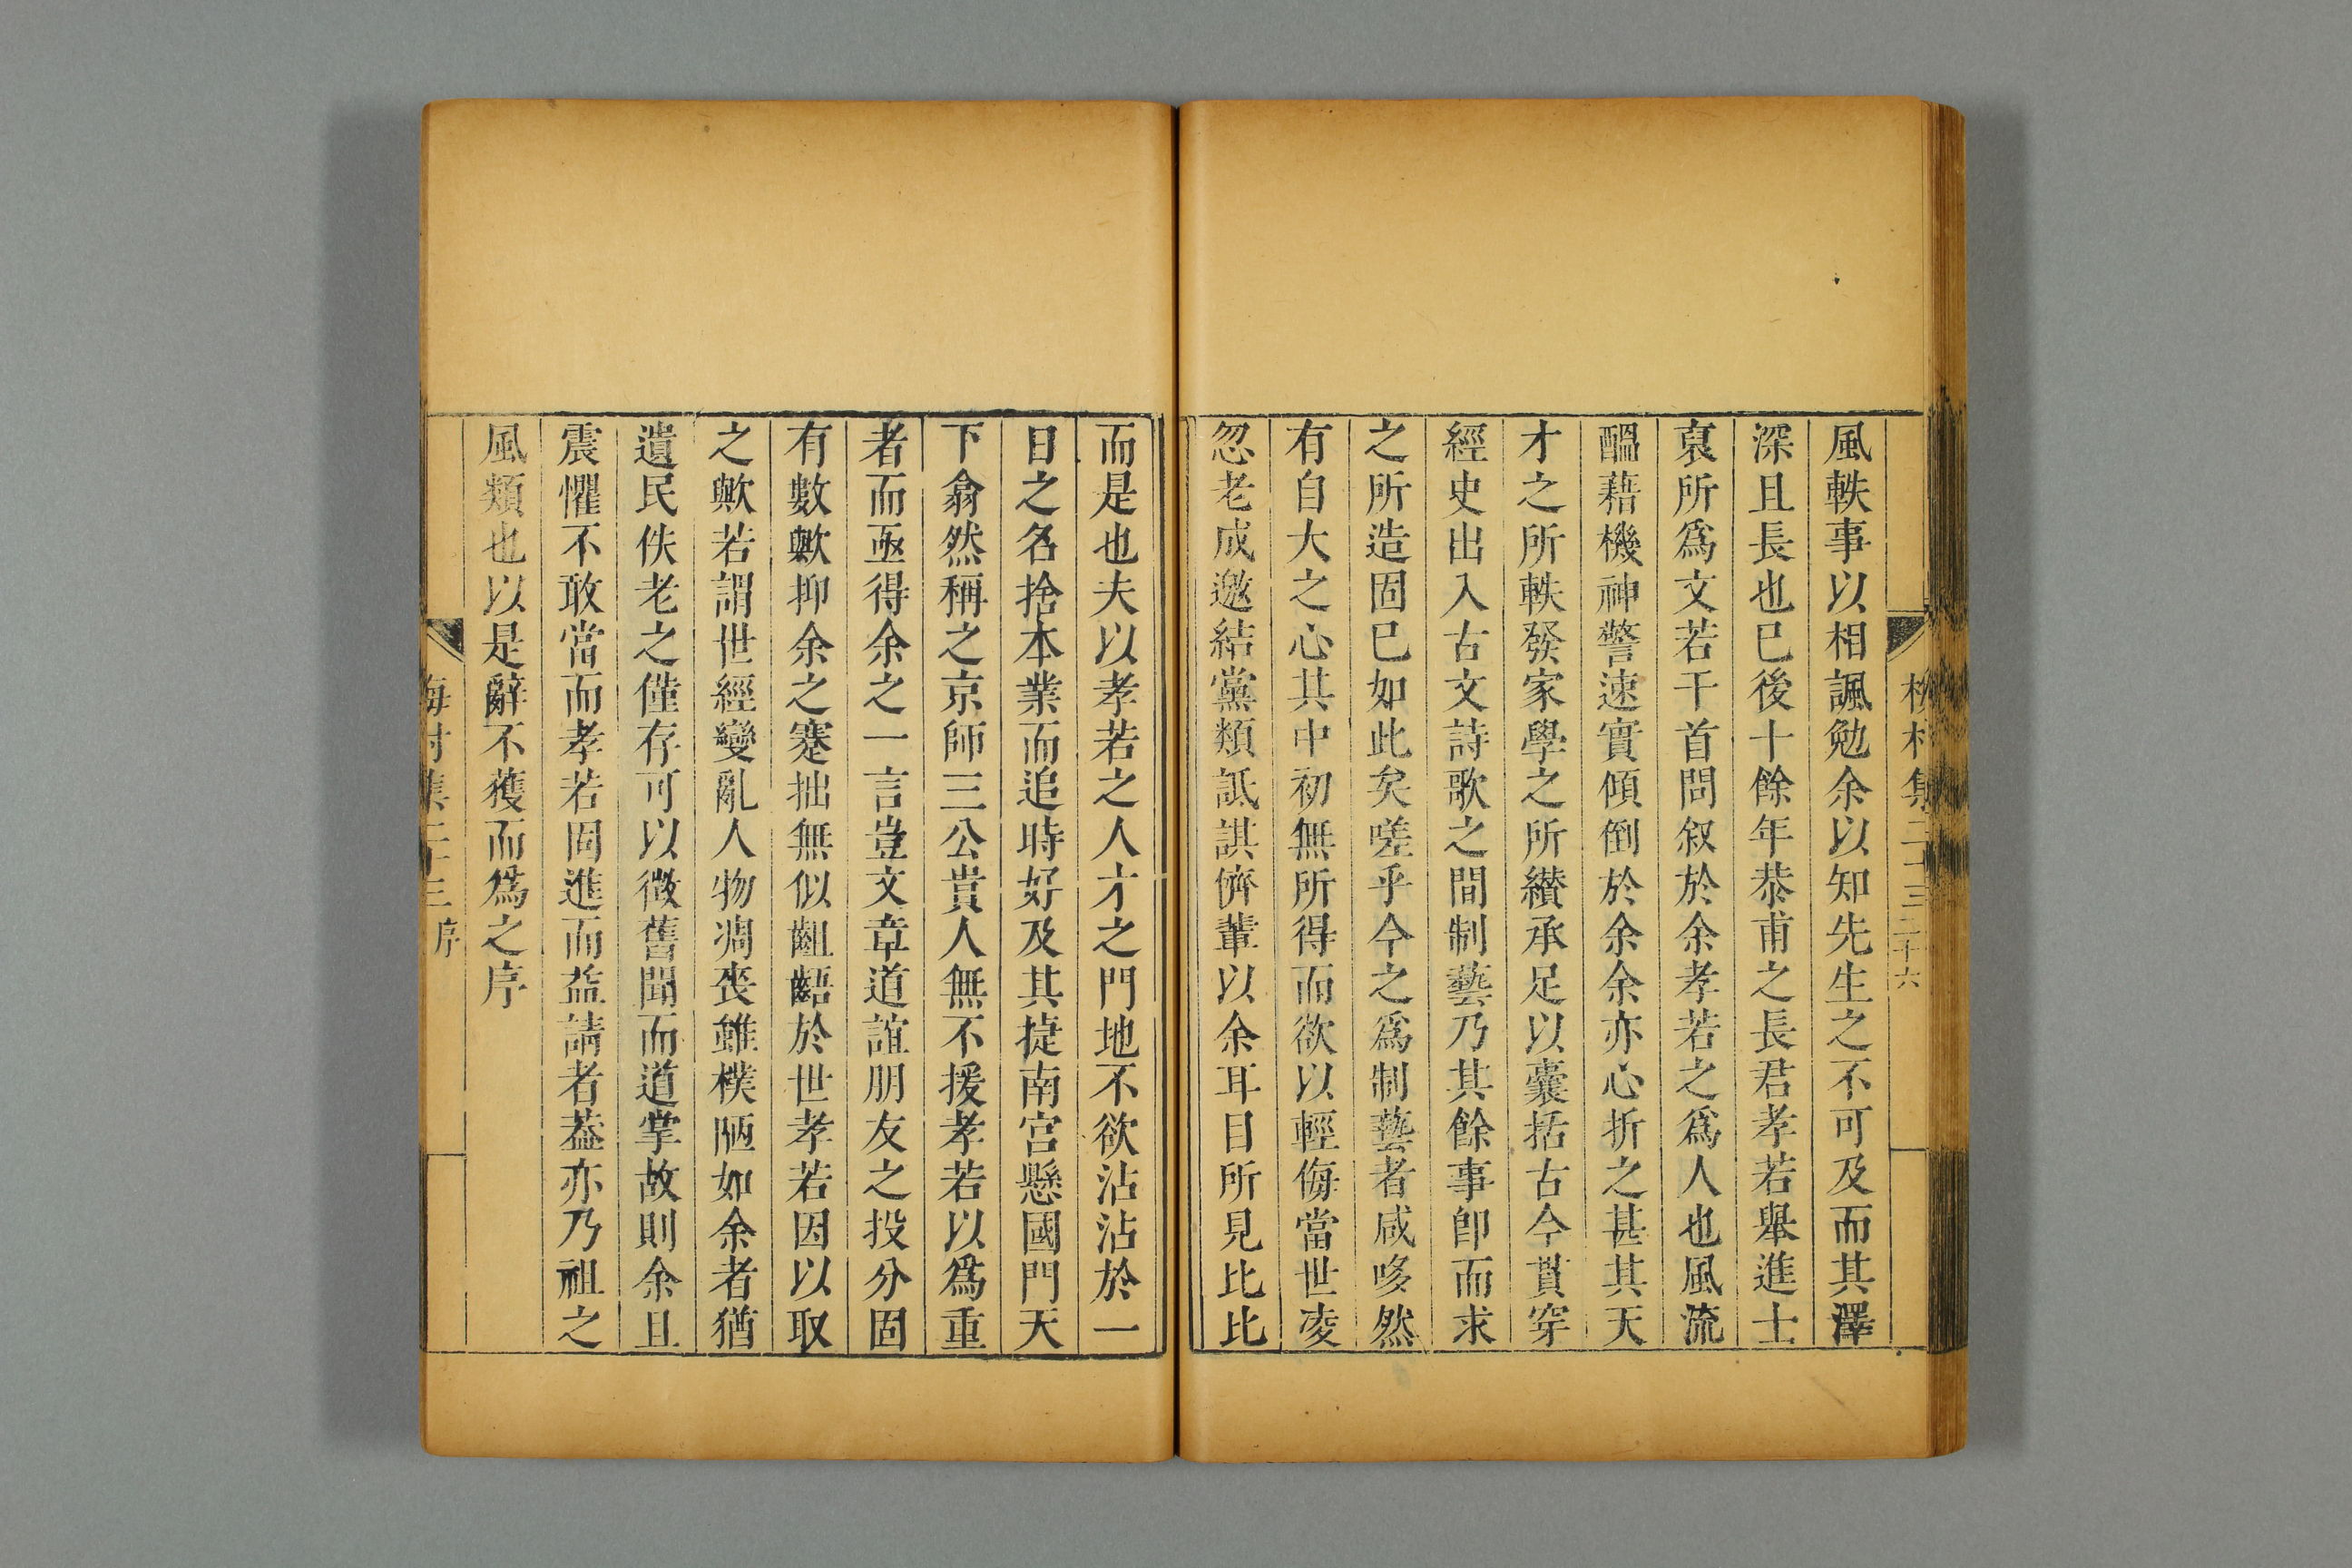 梅村集二十三 二十六
風軼事以相諷勉余以知先生之不可及而其澤
深且長也已後十餘年恭甫之長君孝若舉進士
裒所爲文若干首問叙於余孝若之爲人也風流
醞藉機神警速實傾倒於余余亦心折之甚其天
才之所軼發家學之所纉承足以囊括古今貫穿
經史出入古文詩歌之間制藝乃其餘事卽而求
之所造固已如此矣嗟乎今之爲制藝者咸哆然
有自大之心其中初無所得而欲以輕侮當世凌
忽老成邀結黨類詆諆儕輩以余耳目所見比比
而是也夫以孝若之人才之門地不欲沾沾於一
日之名捨本業而追時好及其㨗南宫懸國門天
下翕然稱之京師三公貴人無不援孝若以爲重
者而亟得余之一言豈文章道誼朋友之投分固
有數歟抑余之蹇拙無似齟齬於世孝若因以取
之歟若謂世經變亂人物凋喪雖樸陋如余者猶
遺民佚老之僅存可以徵舊聞而道掌故則余且
震懼不敢當而孝若固進而益請者葢亦乃祖之
風類也以是辭不獲而爲之序
梅村集二十三 序